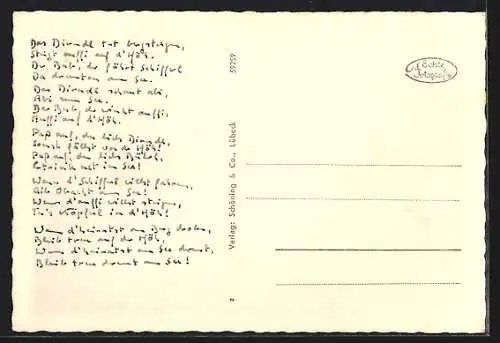 Das Dirndl tut bergsteigen,
Steigt auffi auf d'Höh.
Der Bub, der fährt Schifferl
Da drunten am See.
Das Dirndl schaut abi,
Abi zum See.
Der Bub, der winkt auffi,
Auffi auf d'Höh.
Paß auf, du liabs Dirndl,
sonst fällst von de Höh!
Paß auf, du liabs Büberl,
net im See!
Wenn d'Schifferl willst fahren,
Gib Obacht am See!
Wenn d'auffi willst steigen,
Tu's Köpferl in d'Höh!
Wenn d'heiratst am Berg drobn,
Bleib treu auf der Höh,
Wenn d'heiratst am See drunt,
Bleib treu drunt am See!
59259
Verlag: Schöning & Co., Lübeck
z
Echte
Fotografie